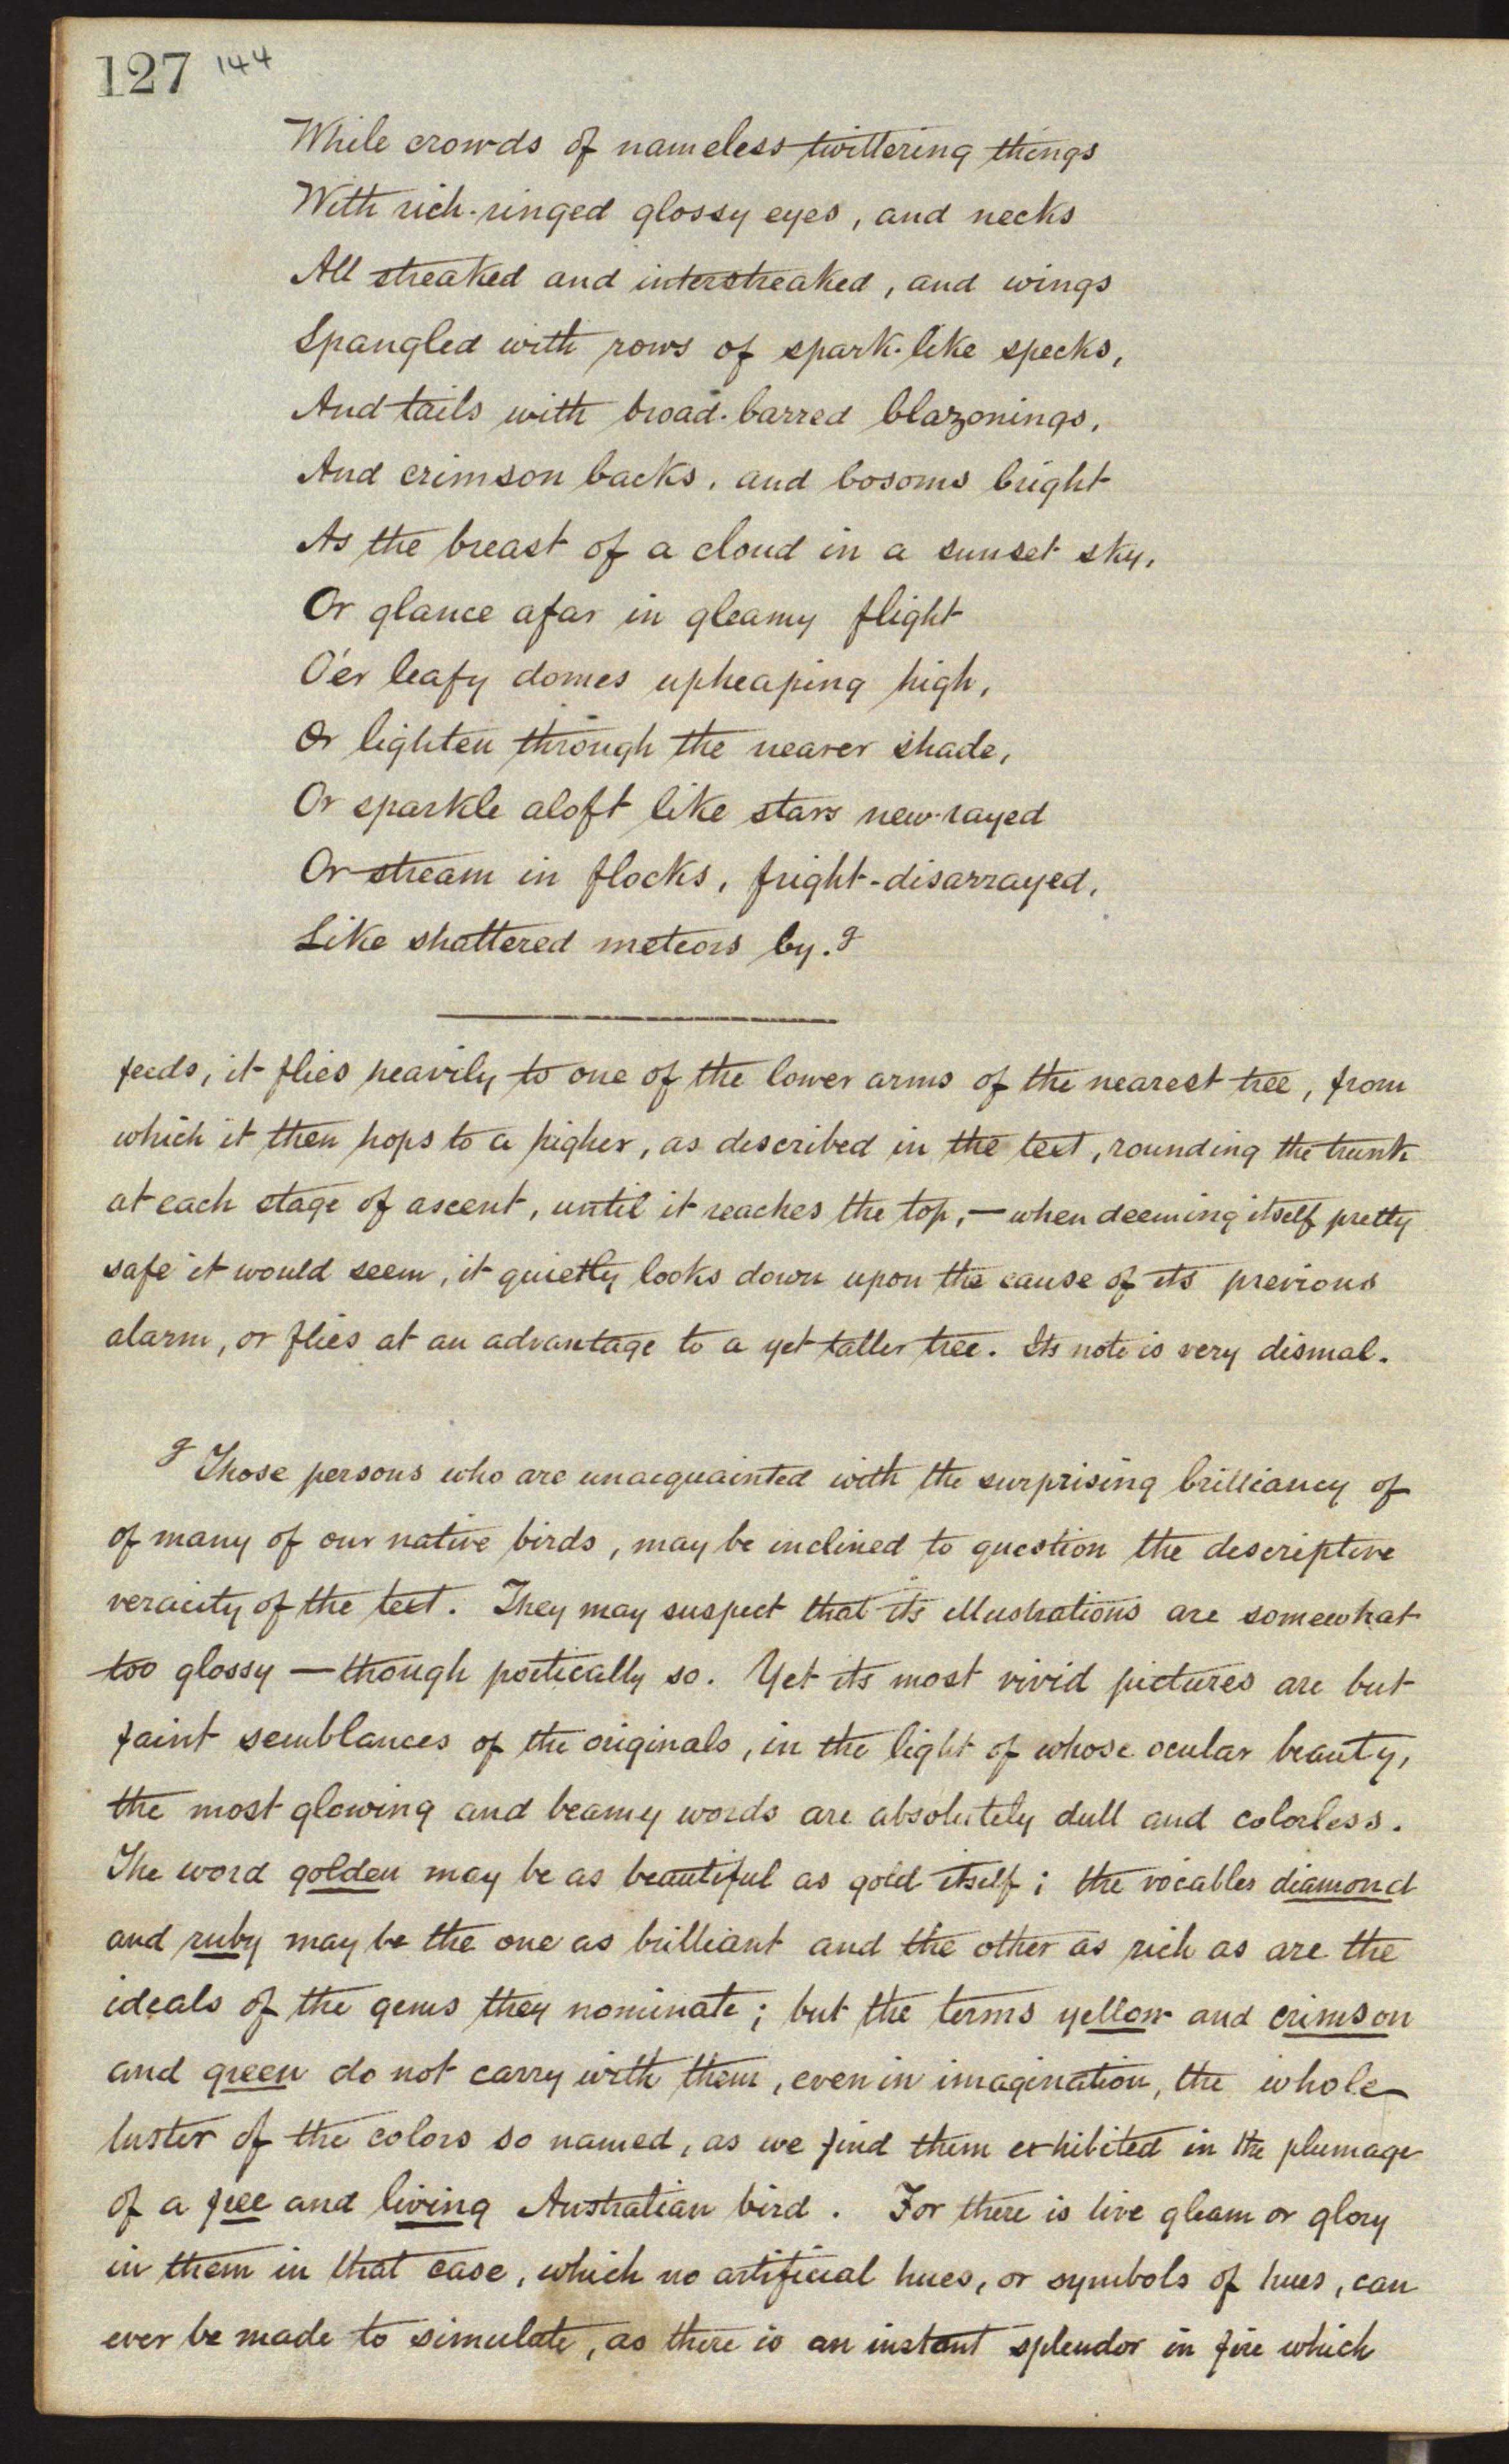 127 144
While crowds of nameless twittering things
With rich-ringed glossy eyes, and necks
All streaked and interstreaked, and wings
Spangled with rows of spark-like specks,
And tails with broad-barred blazonings,
And crimson backs, and bosoms bright
As the breast of a cloud in a sunset sky,
Or glance afar in gleamy flight
O'er leafy domes upheaping high,
Or lighten through the nearer shade,
Or sparkle aloft like stars new-rayed
Or stream in flocks, fright-disarrayed,
Like shattered meteors by. g
feeds, it flies heavily to one of the lower arms of the nearest tree, from
which it then hops to a higher, as described in the text, rounding the trunk
at each stage of ascent, until it reaches the top,—when deeming itself pretty
safe it would seem, it quietly looks down upon the cause of its previous
alarm, or flies at an advantage to a yet taller tree. Its note is very dismal.
g Those persons who are unacquainted with the surprising brilliancy of
of many of our native birds, may be inclined to question the descriptive
veracity of the text. They may suspect that its illustrations are somewhat
too glossy—though poetically so. Yet its most vivid pictures are but
faint semblances of the originals, in the light of whose ocular beauty,
the most glowing and beamy words are absolutely dull and colorless.
The word golden may be as beautiful as gold itself; the vocables diamond
and ruby may be the one as brilliant and the other as rich as are the
ideals of the gems they nominate; but the terms yellow and crimson
and green do not carry with them, even in imagination, the whole
luster of the colors so named, as we find them exhibited in the plumage
of a free and living Australian bird. For there is live gleam or glory
in them in that case, which no artificial hues, or symbols of hues, can
ever be made to simulate, as there is an instant splendor in fire which